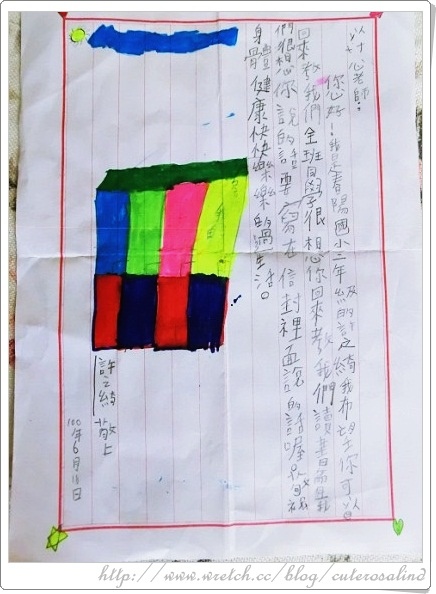 老師:
您好!我是春陽國小三年級的許之綺我布望你可以
回來教我們全班同學很想你回來教我們讀書而且我
們很想你說的話要寫在信封裡面說的話喔!祝
身體健康快快樂樂的過生活。
許之綺 敬上
100年6月日
http://www.wretch.cc/blog/cuterosalind